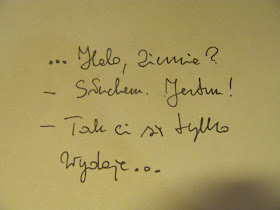 ... Halo, Ziemio?
- Słucham. Jestem!
- Tak ci się tylko
wydaje...